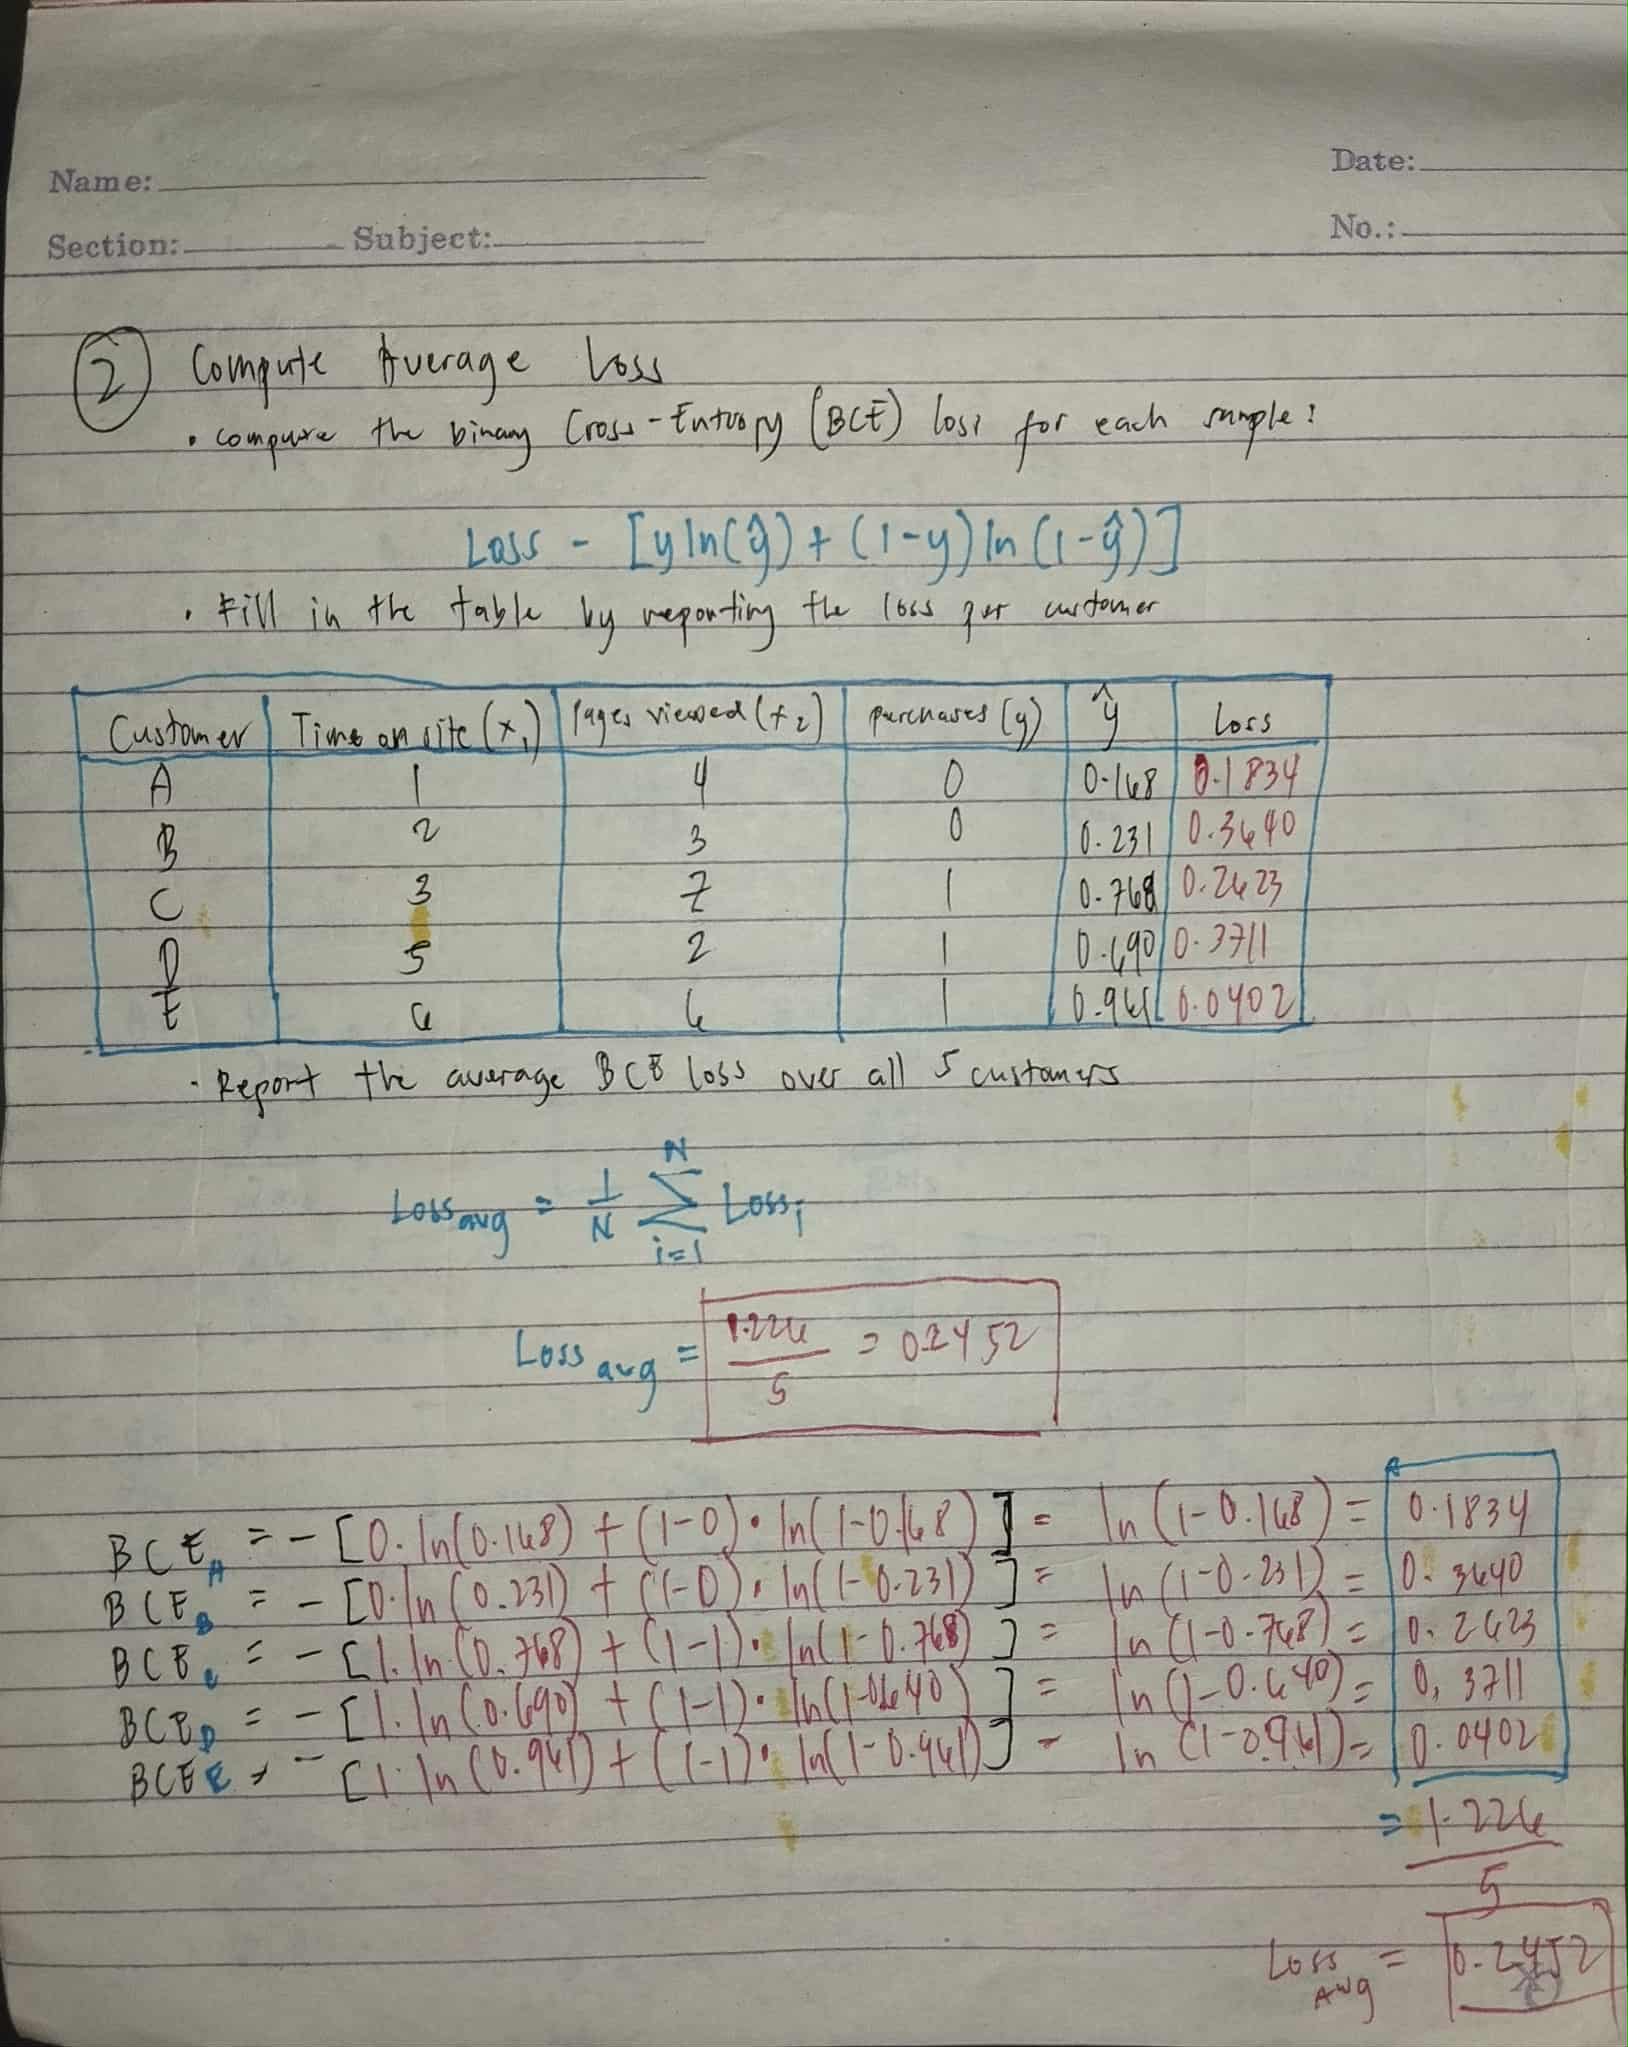 Name:
Date:
Section: Subject:
No.:
2 Compute Average Loss
• compute the binary Cross-Entropy (BCE) loss for each sample:
Loss - [y ln(ŷ) + (1-y) ln (1-ŷ)]
• Fill in the table by reporting the loss per customer
Customer Time on site (x₁) Pages viewed (x₂) purchases (y) ŷ Loss
A 1 4 0 0.168 0.1834
B 2 3 0 0.231 0.3640
C 3 7 1 0.768 0.2623
D 5 2 1 0.690 0.3711
E 6 6 1 0.961 0.0402
• Report the average BCE loss over all 5 customers
Loss avg = 1/N Σ N i=1 Loss i
Loss avg = 1.226/5 = 0.2452
BCE A = - [0. ln(0.168) + (1-0) • ln(1-0.168)] = ln (1-0.168) = 0.1834
BCE B = - [0. ln (0.231) + (1-0) • ln(1-0.231)] = ln (1-0.231) = 0.3640
BCE C = - [1. ln (0.768) + (1-1) • ln(1-0.768)] = ln (1-0.768) = 0.2623
BCE D = - [1. ln (0.690) + (1-1) • ln(1-0.640)] = ln (1-0.640) = 0.3711
BCE E = - [1. ln (0.961) + (1-1) • ln(1-0.961)] = ln (1-0.961) = 0.0402
= 1.226
5
Loss Avg = 0.2452